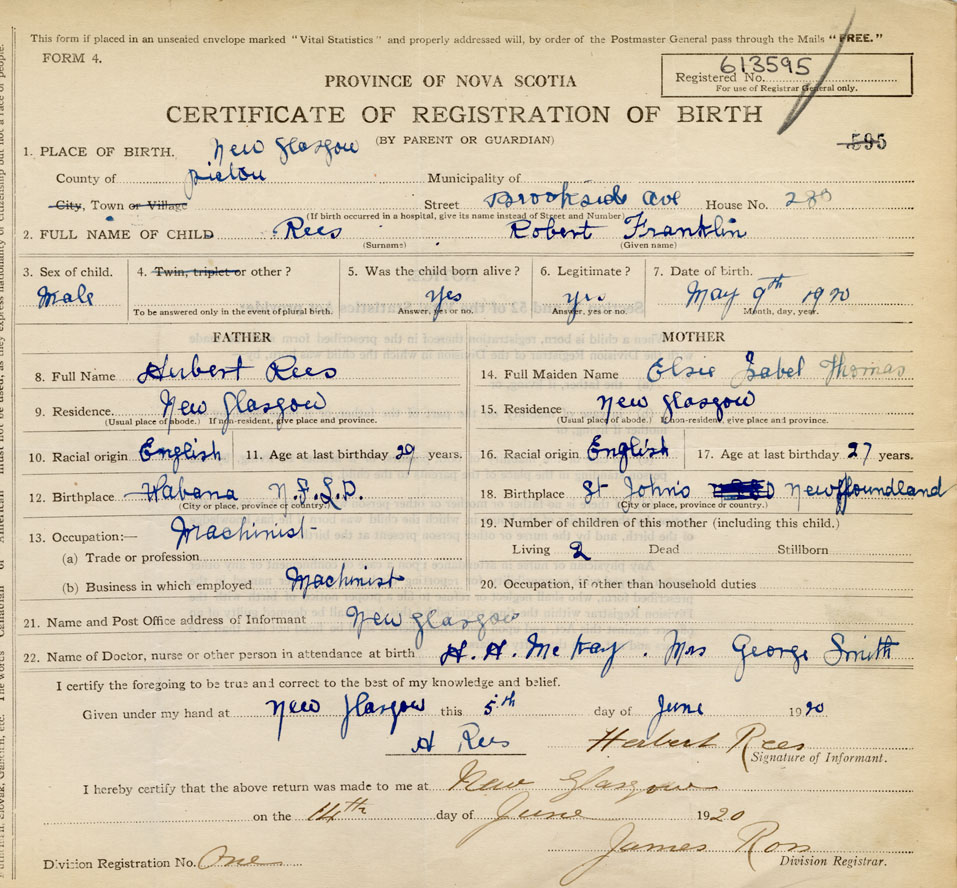 This form if placed in an unsealed envelope marked "Vital Statistics" and properly addressed will, by order of the Postmaster General pass through the Mails "FREE."
FORM 4.
613595
Registered No.
For use of Registrar General only.
PROVINCE OF NOVA SCOTIA
CERTIFICATE OF REGISTRATION OF BIRTH
(BY PARENT OR GUARDIAN)
595
1. PLACE OF BIRTH. New Glasgow
County of Pictou Municipality of
City, Town or Village Street Brookside Ave House No.
(If birth occurred in a hospital, give its name instead of Street and Number)
2. FULL NAME OF CHILD Rees Robert Franklin
(Surname) (Given name)
3. Sex of child. 4. Twin, triplet or other? 5. Was the child born alive? 6. Legitimate? 7. Date of birth.
Male Yes Yes May 9th 1920
To be answered only in the event of plural birth. Answer, yes or no. Answer, yes or no. Month, day, year.
FATHER MOTHER
8. Full Name Herbert Rees 14. Full Maiden Name Elsie Isabel Thomas
9. Residence. New Glasgow 15. Residence New Glasgow
(Usual place of abode.) If non-resident, give place and province. (Usual place of abode.) If non-resident, give place and province.
10. Racial origin English 11. Age at last birthday 29 years. 16. Racial origin English 17. Age at last birthday 27 years.
12. Birthplace Wabana N.F.L.D. 18. Birthplace St John's Newffoundland
(City or place, province or country.) (City or place, province or country.)
13. Occupation:— Machinist 19. Number of children of this mother (including this child.)
(a) Trade or profession Living 2 Dead Stillborn
(b) Business in which employed Machinist 20. Occupation, if other than household duties
21. Name and Post Office address of Informant New Glasgow
22. Name of Doctor, nurse or other person in attendance at birth H. H. McKay. Mrs George Smith
I certify the foregoing to be true and correct to the best of my knowledge and belief.
Given under my hand at New Glasgow this 5th day of June 1920
H Rees Herbert Rees
Signature of Informant.
I hereby certify that the above return was made to me at New Glasgow
on the 14th day of June 1920
James Ross
Division Registration No. One Division Registrar.